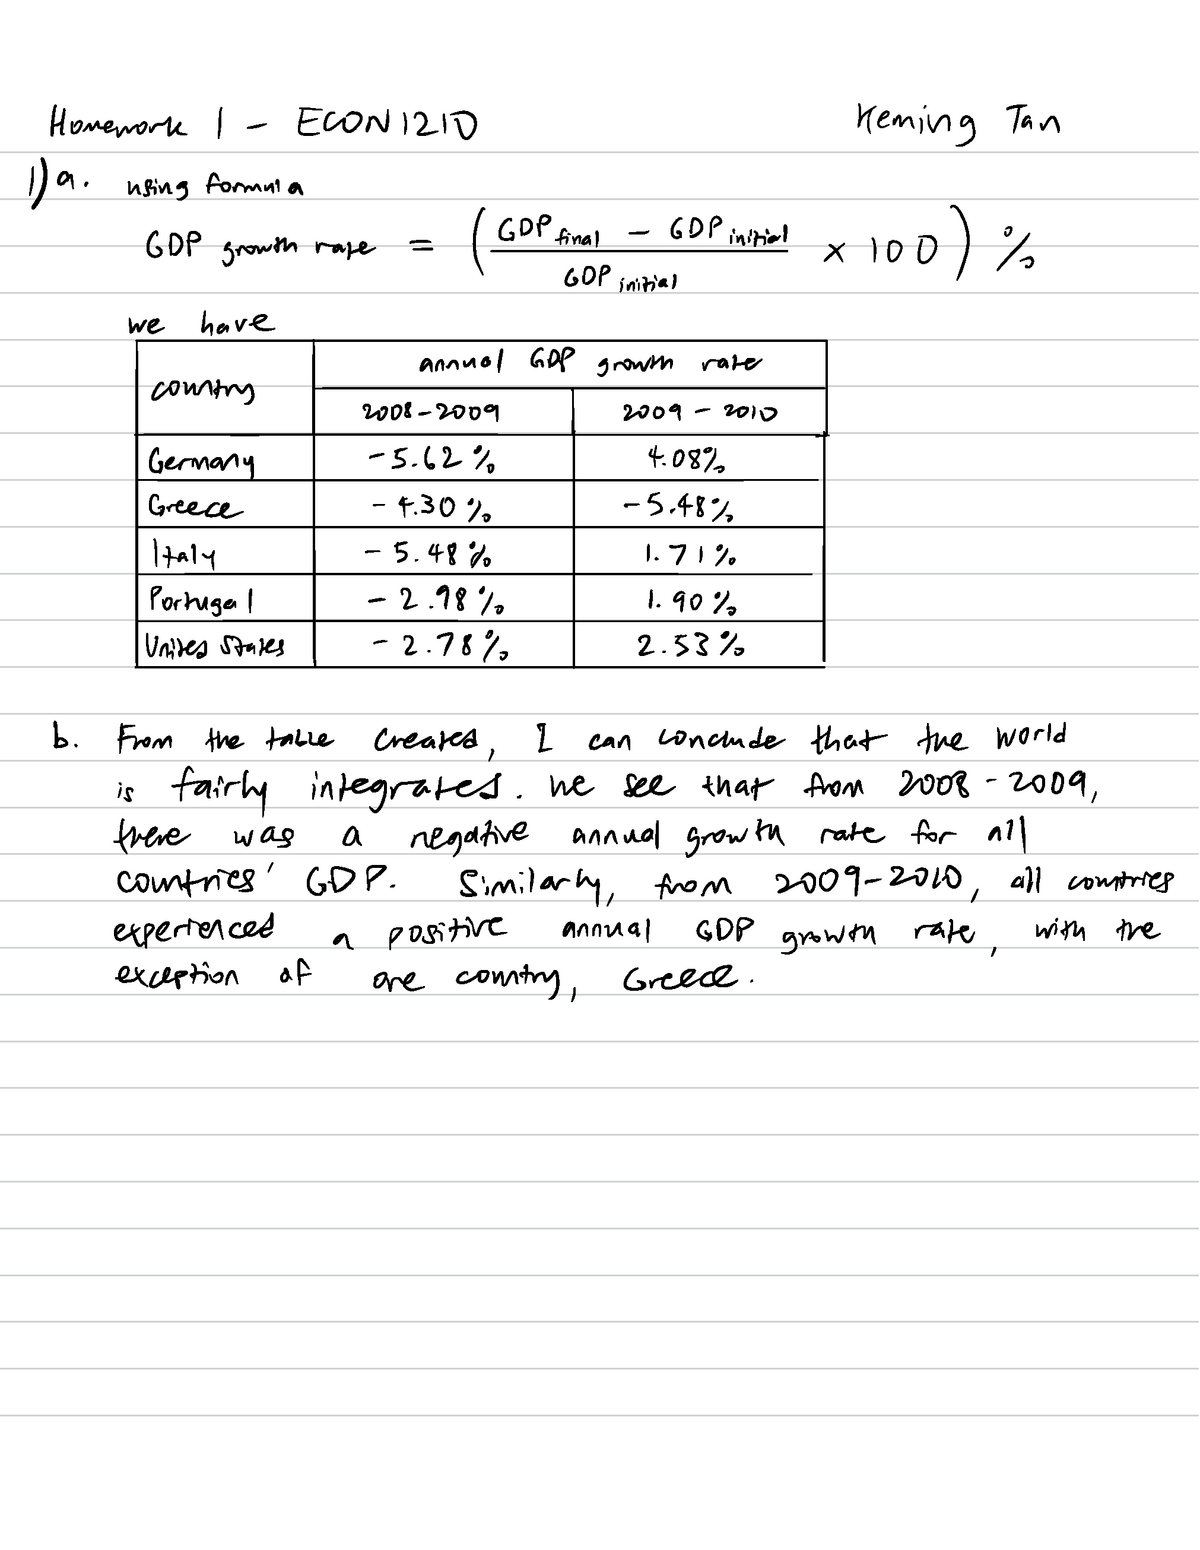 Homework 1 - ECON1210 Keming Tan
1) a. using formula
GDP growth rate = ( GDP final - GDP initial / GDP initial × 100 ) %
we have
country annual GDP growth rate
2008-2009 2009-2010
Germany -5.62% 4.08%
Greece -4.30% -5.48%
Italy -5.48% 1.71%
Portugal -2.98% 1.90%
United States -2.78% 2.53%
b. From the table created, I can conclude that the world
is fairly integrated. We see that from 2008-2009,
there was a negative annual growth rate for all
countries' GDP. Similarly, from 2009-2010, all countries
experienced a positive annual GDP growth rate, with the
exception of one country, Greece.